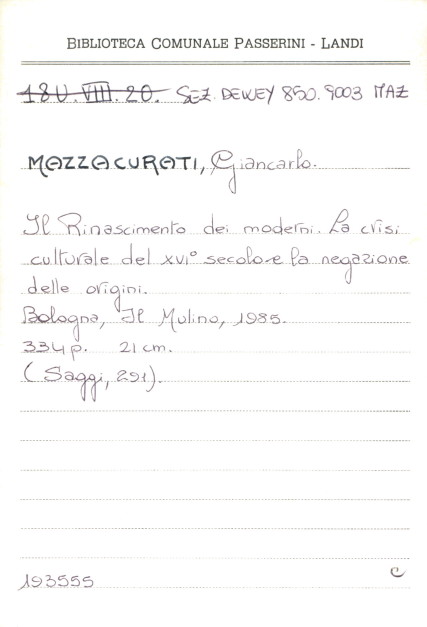 BIBLIOTECA COMUNALE PASSERINI - LANDI
18U.VIII.20. SEZ. DEWEY 850.9003 MAZ
MAZZACURATI, Giancarlo.
Il Rinascimento dei moderni. La crisi
culturale del XVI° secolo e la negazione
delle origini.
Bologna, Il Mulino, 1985.
334 p. 21 cm.
(Saggi, 291).
193555 C